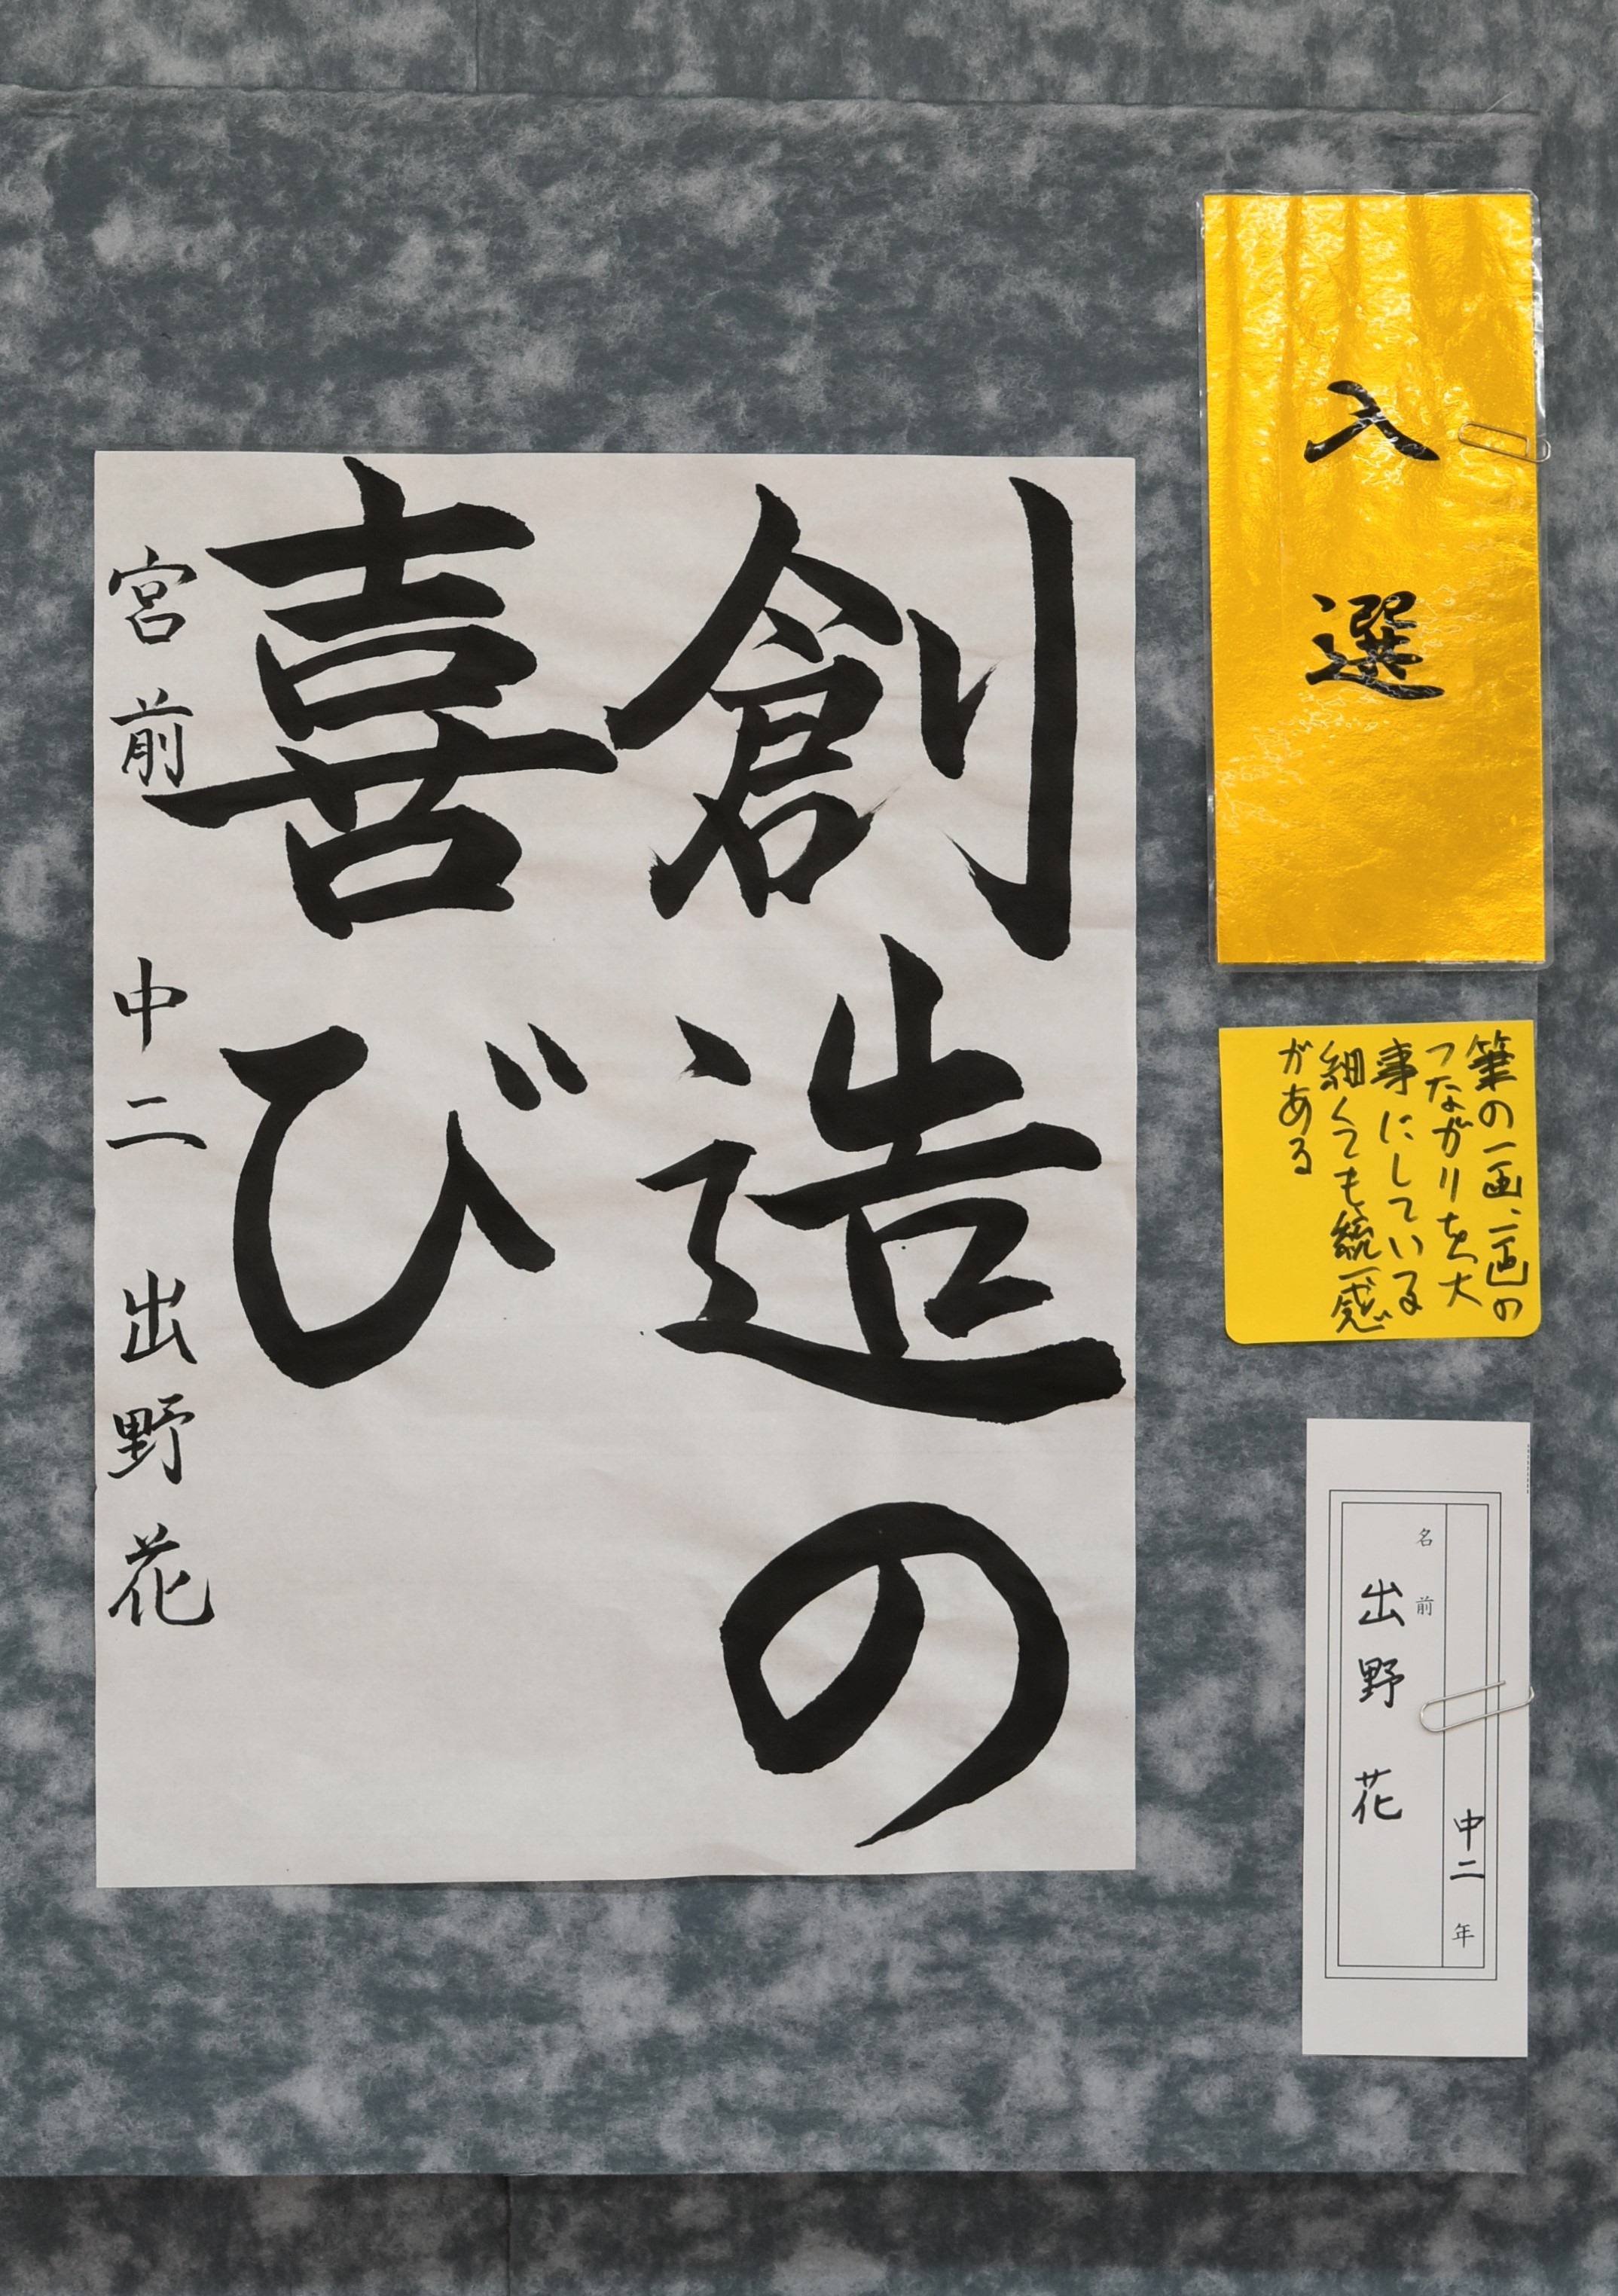 入選
筆の一画、一画の
つながりを大
事にしている
細くても統一感
がある
中二年
名前
出野花
創造の
喜び
宮前 中二 出野花